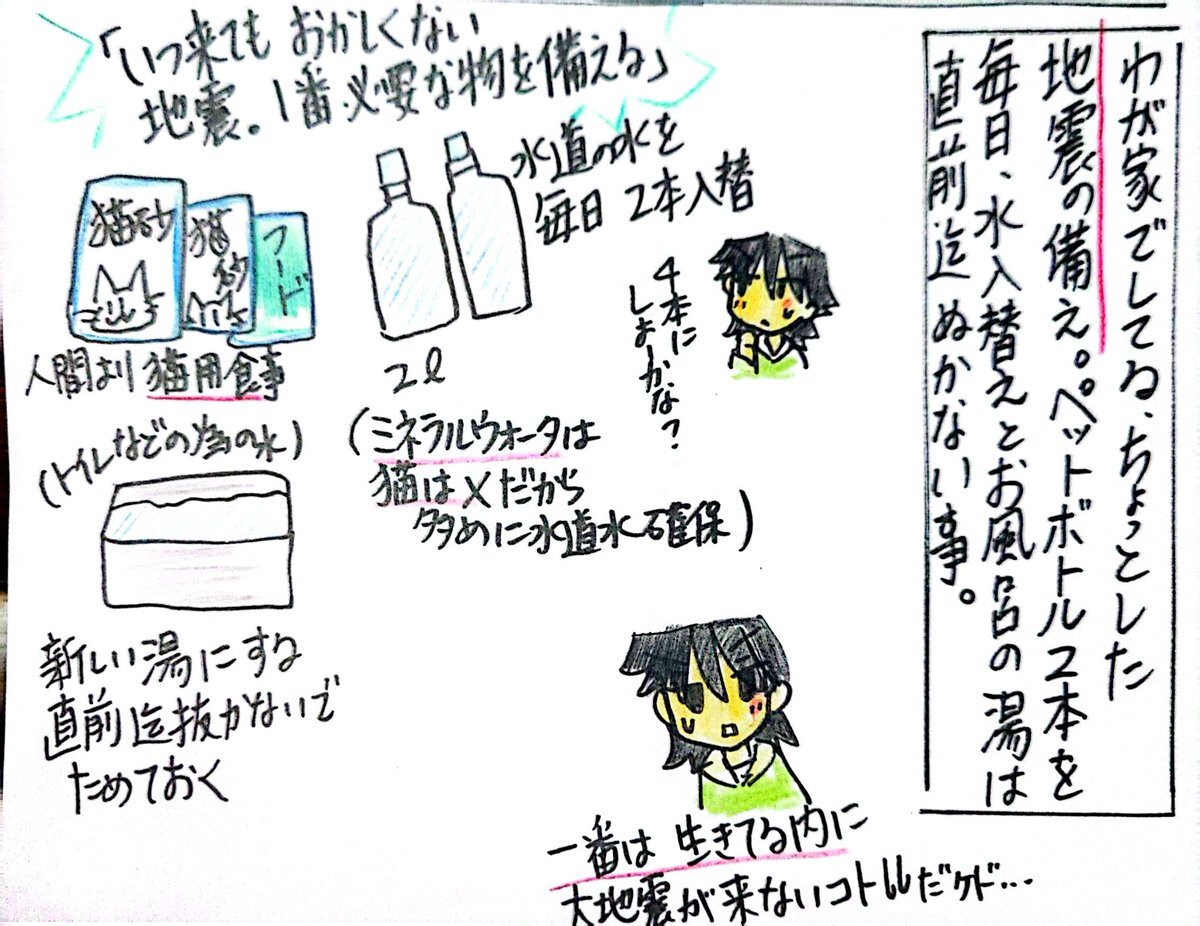 わが家でしてる、ちょっとした
地震の備え。ペットボトル2本を
毎日、水入替えとお風呂の湯は
直前迄ぬかない事。
「いつ来ても おかしくない
地震。1番必要な物を備える」
猫砂
猫砂
フード
人間より 猫用食事
水道の水を
毎日 2本入替
2ℓ
4本に
しよかな?
(ミネラルウォータは
猫は×だから
多めに水道水確保)
(トイレなどの為の水)
新しい湯にする
直前迄抜かないで
ためておく
一番は 生きてる内に
大地震が来ないコトだケド…